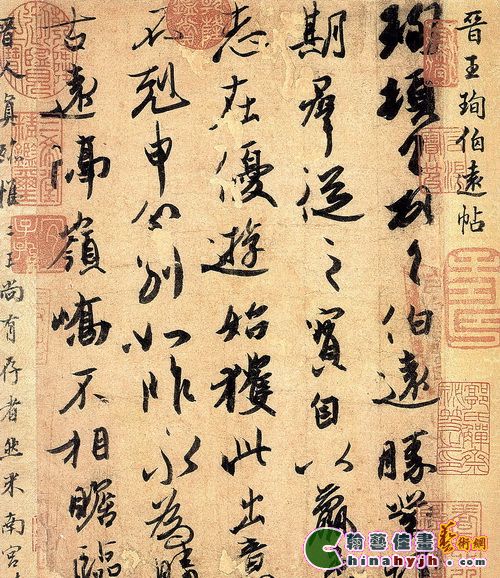 晉王珣伯遠帖
珣頓首頓首伯遠勝業
期羣從之寶自以羸
志在優遊始獲此出意
不剋申分別如昨永為疇
古遠隔嶺嶠不相瞻臨
晉人真跡惟二王尚有存者然米南宮
翰藝佳畫藝術網
Chinahyjh.com